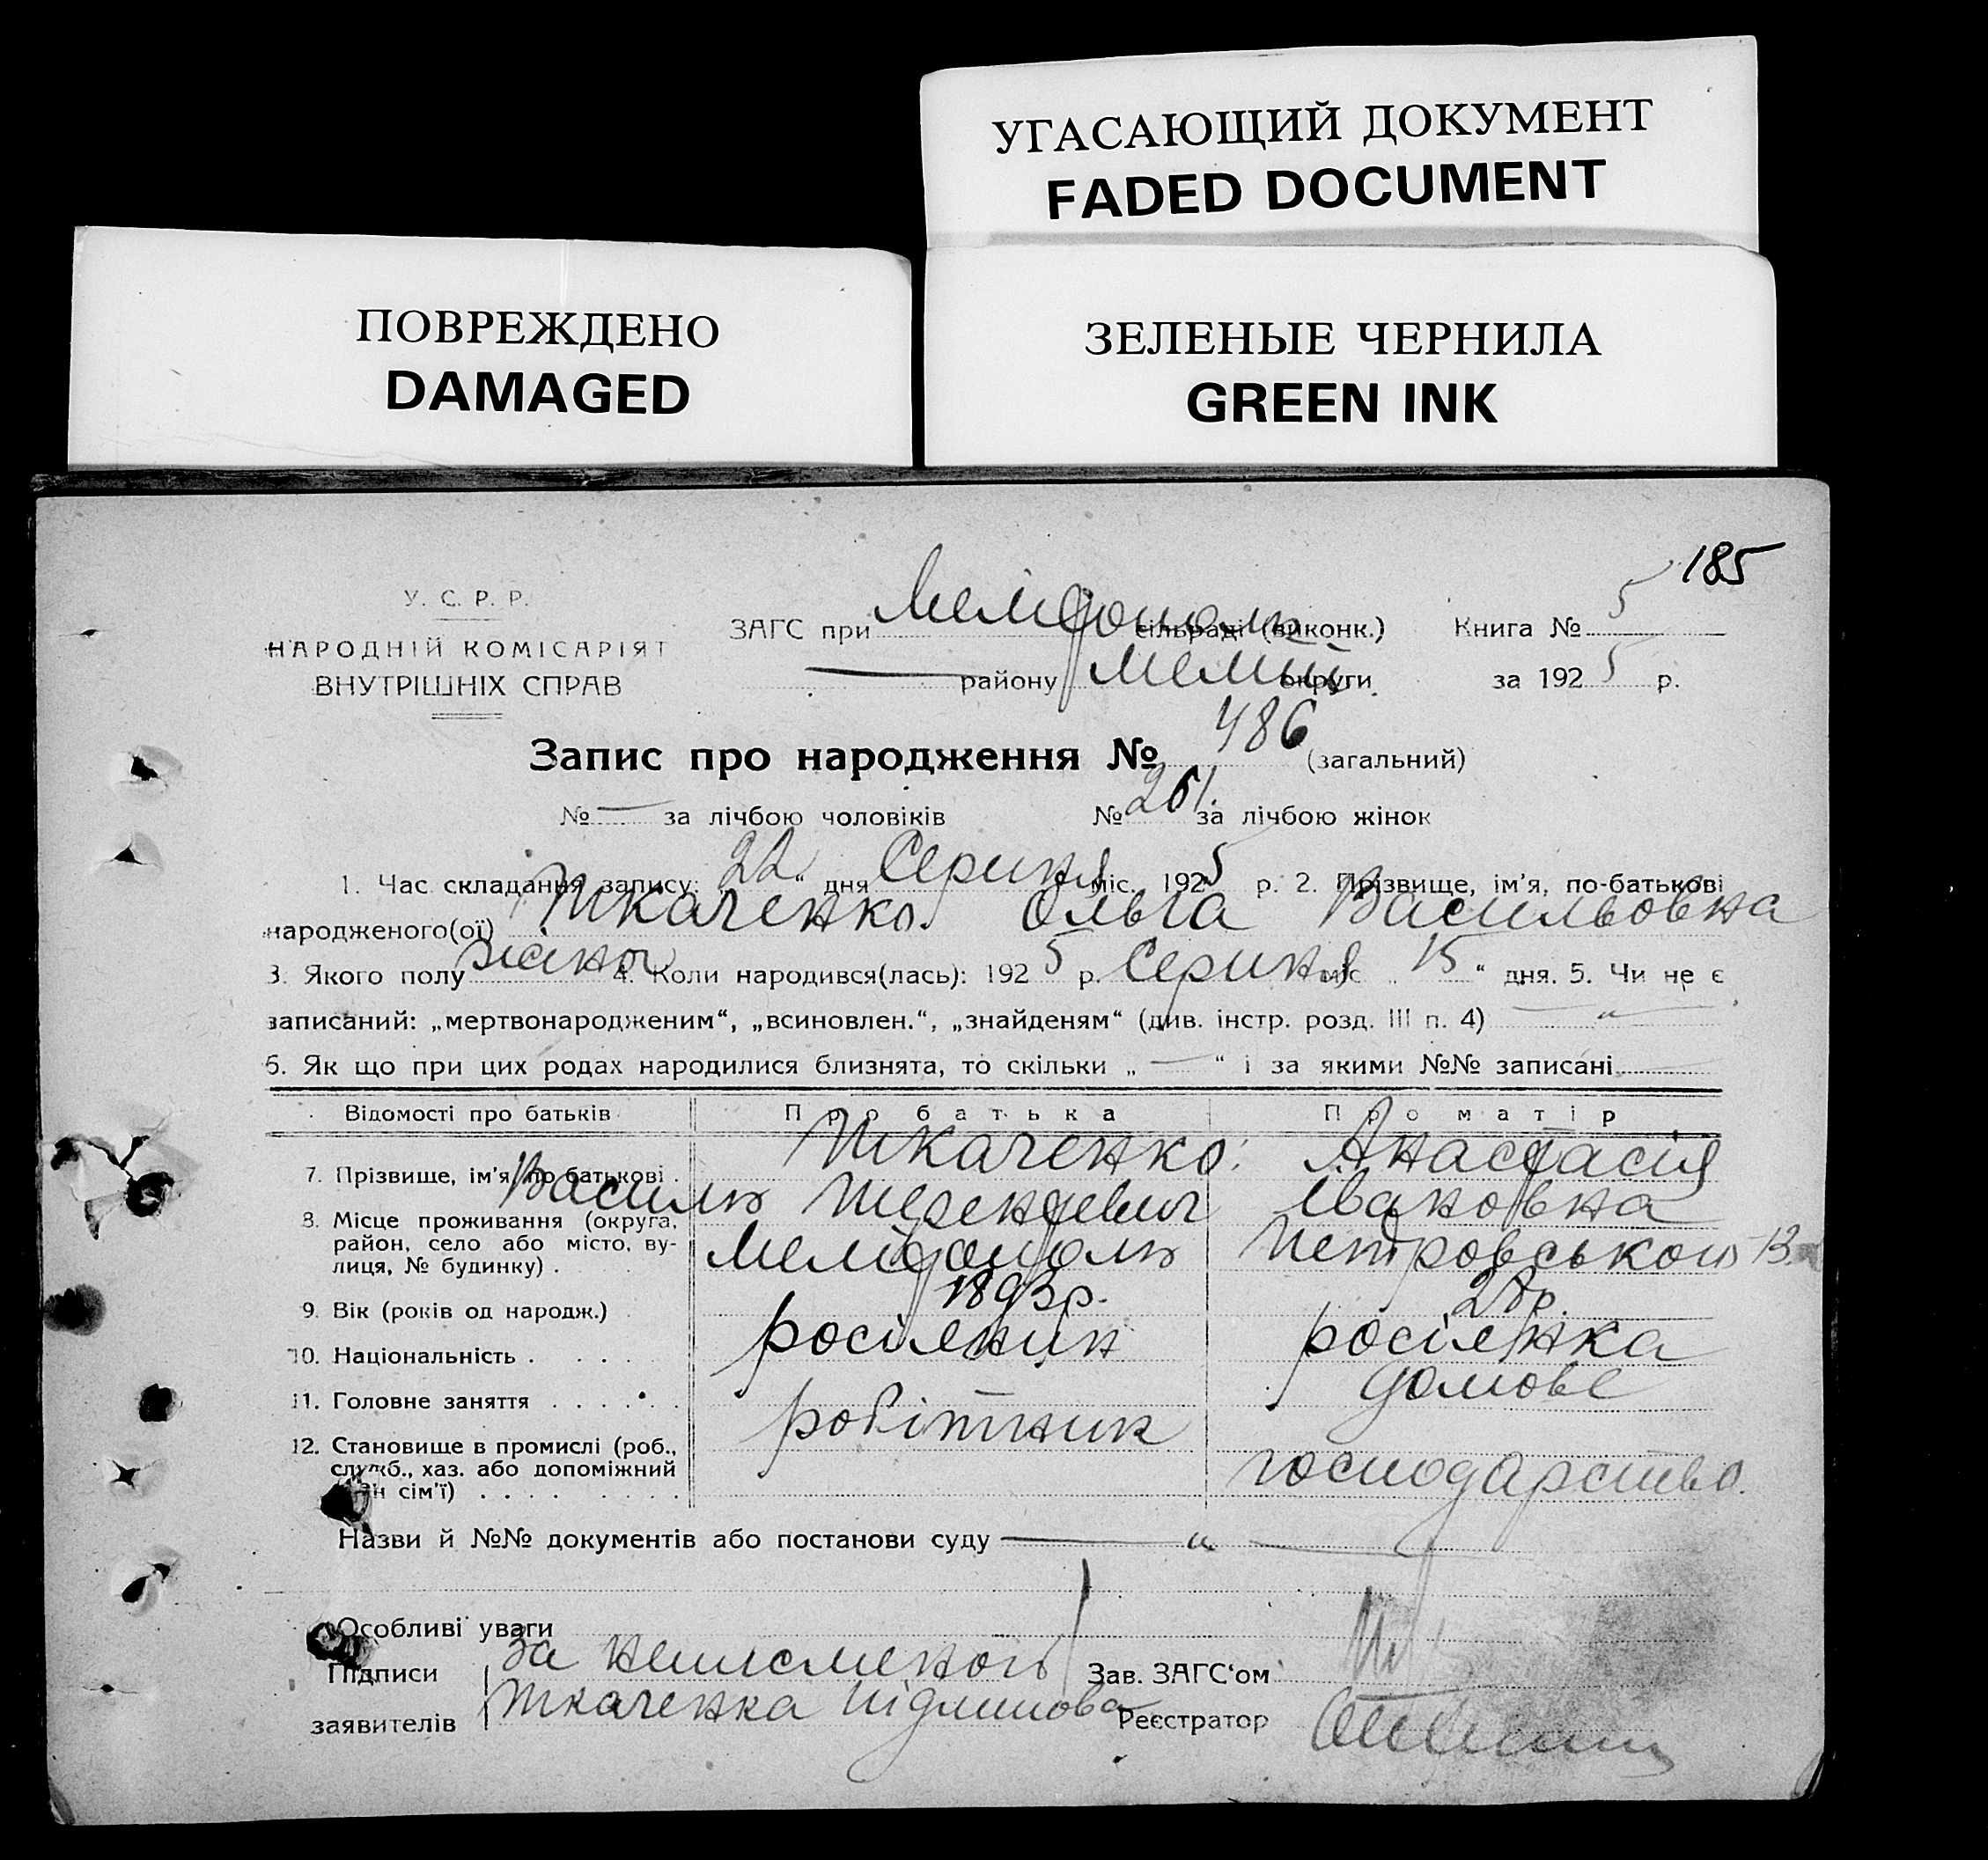 УГАСАЮЩИЙ ДОКУМЕНТ
FADED DOCUMENT
ПОВРЕЖДЕНО
DAMAGED
ЗЕЛЕНЫЕ ЧЕРНИЛА
GREEN INK
185
У. С. Р. Р.
НАРОДНІЙ КОМІСАРІЯТ
ВНУТРІШНІХ СПРАВ
ЗАГС при Мелітополь сільраді (виконк.) Книга № 5
— району округи за 1925 р.
Запис про народження № 486 (загальний)
№ — за лічбою чоловіків № 261. за лічбою жінок
1. Час складання запису: „22“ дня Серпня міс. 1925 р. 2. Прізвище, ім'я, по-батькові
народженого(ої) Ткаченко Ольга Васильовна
3. Якого полу 4. Коли народився(лась): 1925 р. Серпня міс „15“ дня. 5. Чи не є
записаний: „мертвонародженим“, „всиновлен.“, „знайденям“ (див. інстр. розд. III п. 4) — „ —
6. Як що при цих родах народилися близнята, то скільки „ — “ і за якими №№ записані —
Відомості про батьків Про батька Про матір
7. Прізвище, ім'я, по батькові . Ткаченко Анастасія
Василь Терентієвич Івановна
8. Місце проживання (округа, район, село або місто, вулиця, № будинку) . Мелітополь Петровською 13
9. Вік (років од народж.) 1893р. 28р.
10. Національність . . . . . росіянин росіянка
11. Головне заняття . . . . . . робітник домове
12. Становище в промислі (роб., служб., хаз. або допоміжний член сім'ї) . . . . . . господарство.
Назви й №№ документів або постанови суду — „ —
Особливі уваги
Підписи За неписьменого Зав. ЗАГС'ом
заявителів Ткаченка Реєстратор